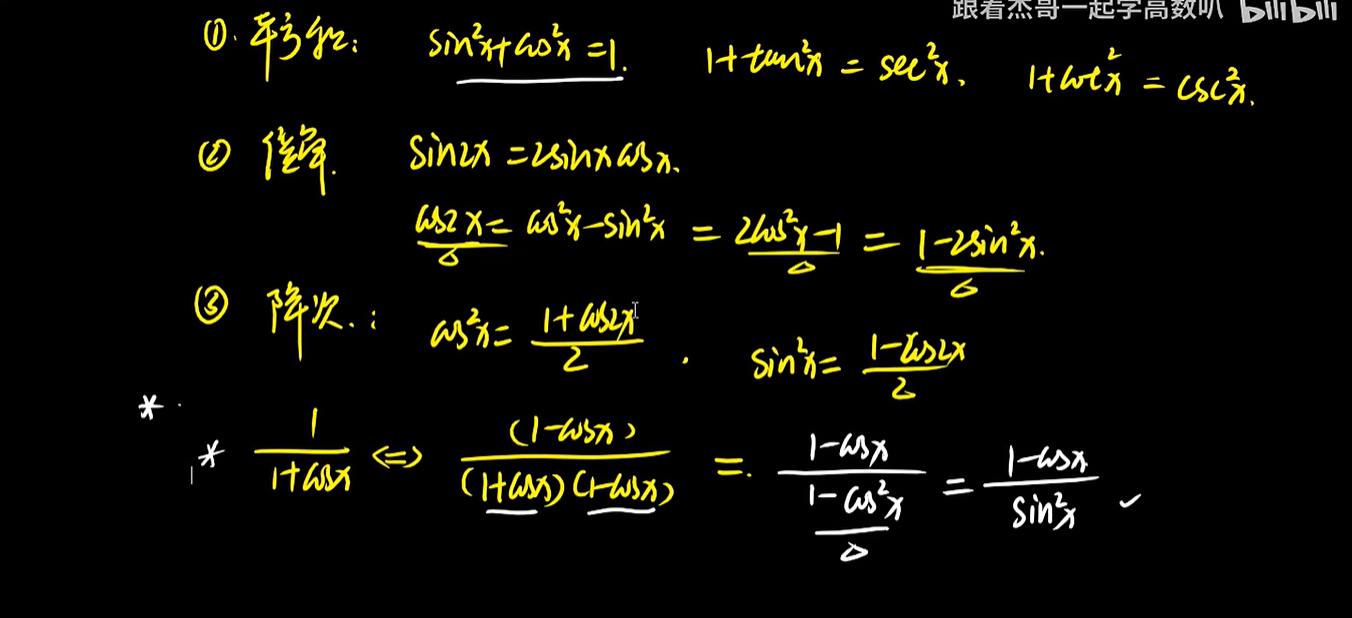 跟着杰哥一起学高数叭 bilibili
①. 平方和: sin²x+cos²x=1. 1+tan²x = sec²x. 1+cot²x = csc²x.
② 倍角. sin2x=2sinxcosx.
cos2x= cos²x-sin²x = 2cos²x-1 = 1-2sin²x.
③ 降次.: cos²x= (1+cos2x)/2 . sin²x= (1-cos2x)/2
*
* 1/(1+cosx) <=> (1-cosx)/((1+cosx)(1-cosx)) =. (1-cosx)/(1-cos²x) = (1-cosx)/(sin²x) ✓